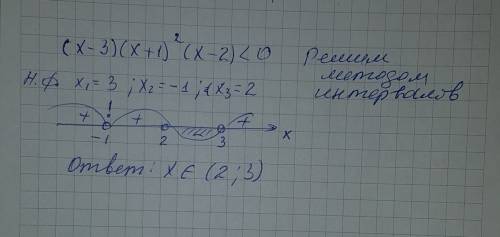 (x-3)(x+1)²(x-2)<0
Решим
методом
интервалов
Н.ф. x₁=3 ; x₂=-1 ; x₃=2
+ + +
-1 2 3 x
Ответ: x ∈ (2;3)